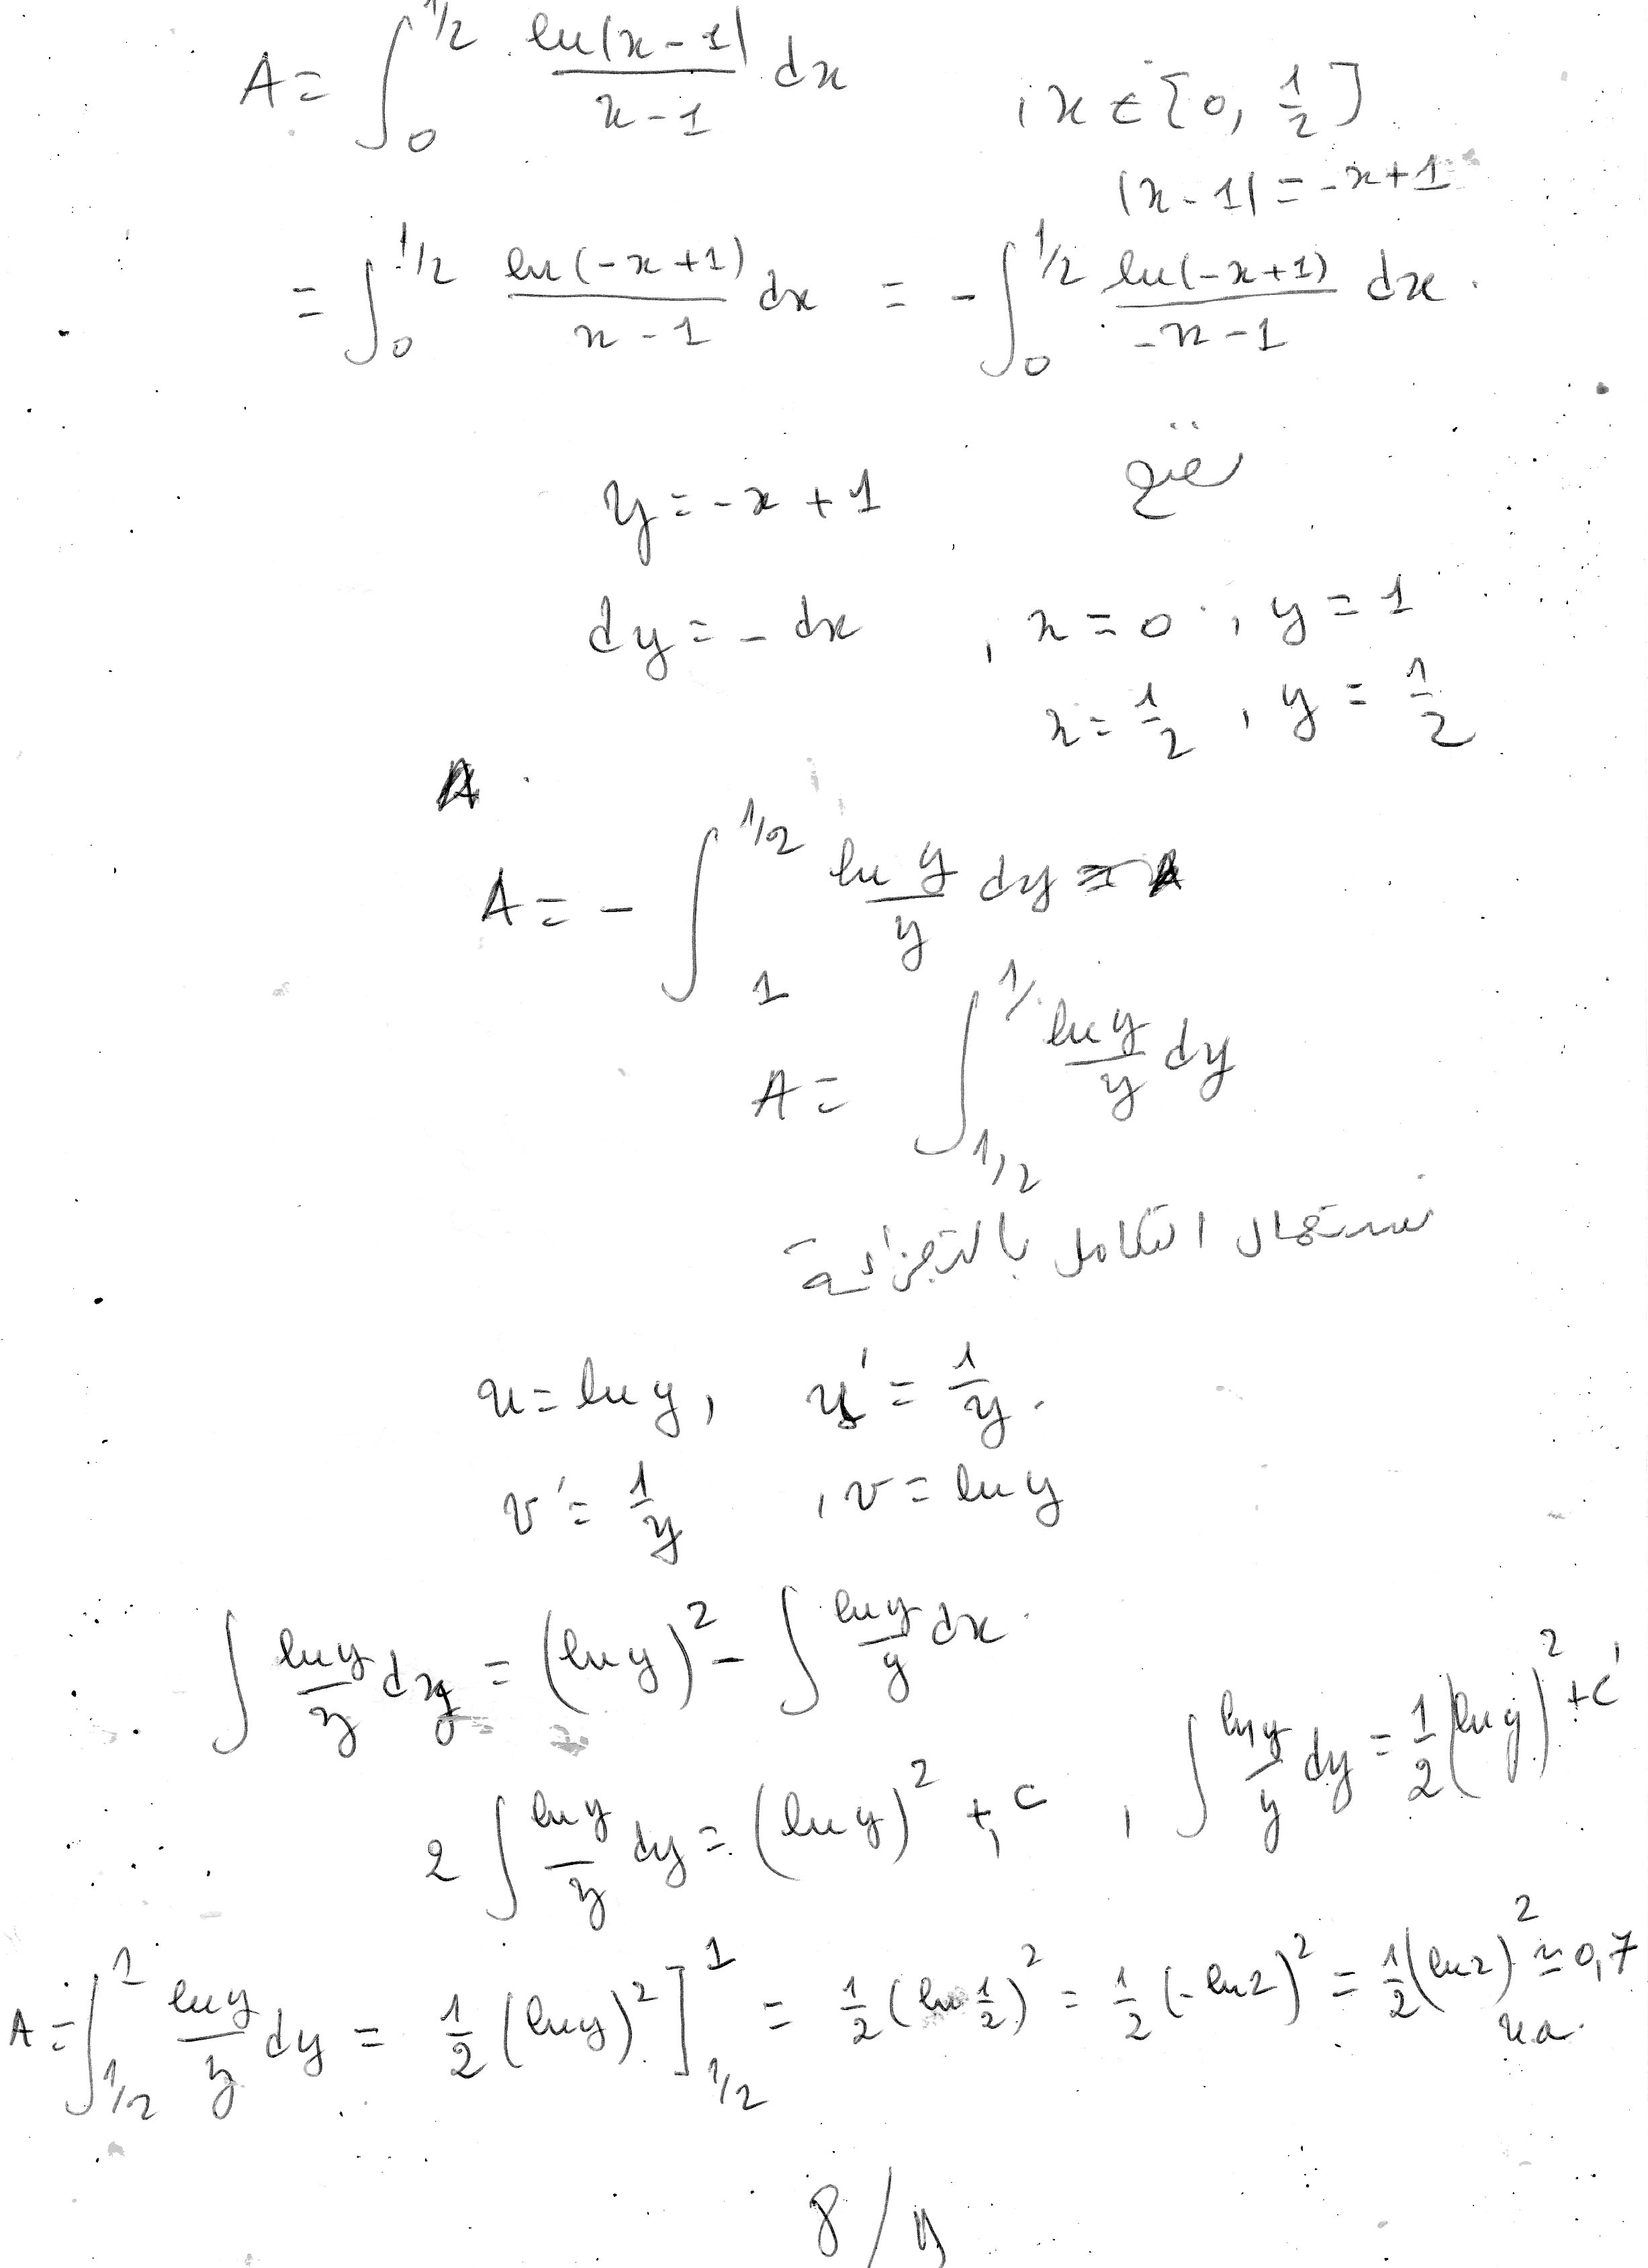 A = ∫₀^{1/2} ln|x-1| / (x-1) dx , x ∈ [0, 1/2]
|x-1| = -x+1
= ∫₀^{1/2} ln(-x+1) / (x-1) dx = - ∫₀^{1/2} ln(-x+1) / (-x-1) dx .
نضع
y = -x + 1
dy = - dx , x = 0 , y = 1
x = 1/2 , y = 1/2
A = - ∫₁^{1/2} ln y / y dy
A = ∫_{1/2}^{1} ln y / y dy
نستعمال التكامل بالتجزئة
u = ln y , u' = 1/y .
v' = 1/y , v = ln y
∫ ln y / y dy = (ln y)² - ∫ ln y / y dx
2 ∫ ln y / y dy = (ln y)² + c , ∫ ln y / y dy = 1/2 (ln y)² + c'
A = ∫_{1/2}^{1} ln y / y dy = 1/2 (ln y)² ]_{1/2}^{1} = 1/2 (ln 1/2)² = 1/2 (-ln 2)² = 1/2 (ln 2)² ≃ 0,7
u.a.
8/